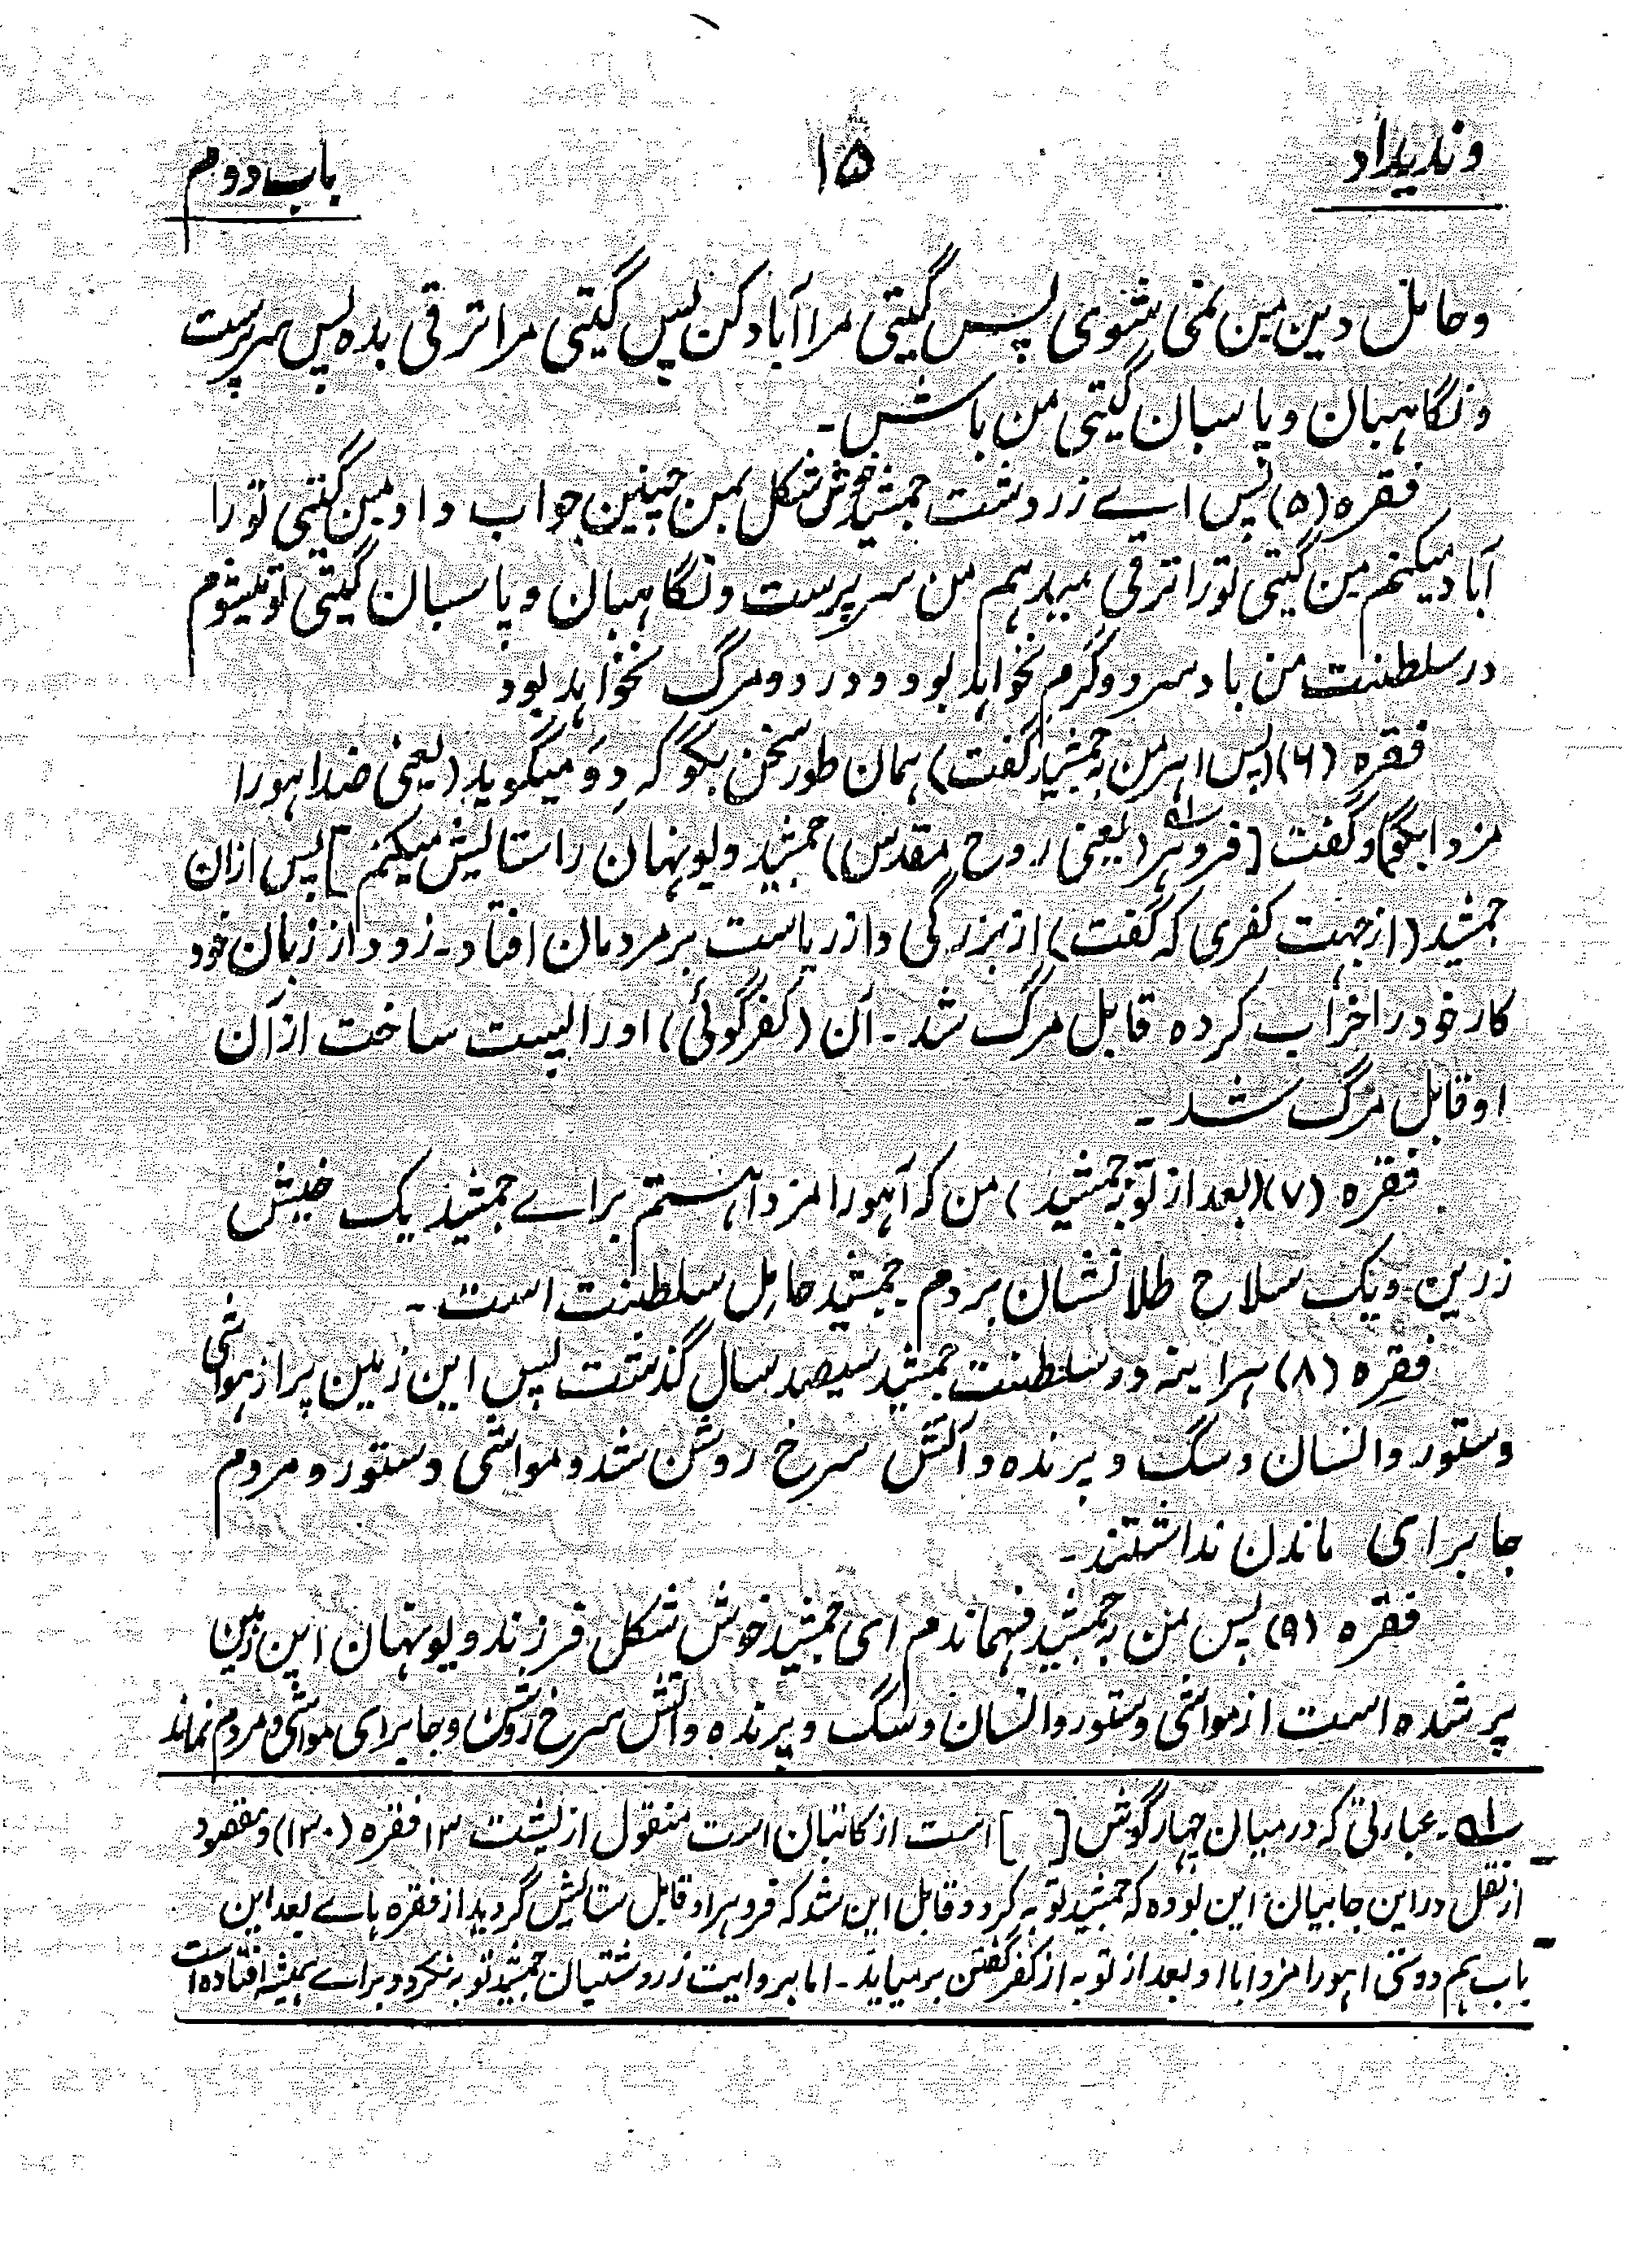 وندیداد
۱۵
باب دوم
و حامل دین من نمی شوی پس گیتی مرا آباد کن پس گیتی مرا ترقی بده پس سرپرست
و نگاهبان و پاسبان گیتی من باش ۔
فقره (۵) پس اے زردشت جمشید خوش شکل بمن چنین جواب داد من گیتی تو را
آباد میکنم من گیتی تو را ترقی میدهم من سرپرست و نگاهبان و پاسبان گیتی تو میشوم
در سلطنت من باد سرد و گرم نخواهد بود و درد و مرگ نخواهد بود
فقره (۶) (پس اهرمن به جمشید گفت) همان طور سخن بگو که دِوَ میگوید (یعنی ضد اهورا
مزدا بگو) و گفت [فروهر ؎۱ (یعنی روح مقدس) جمشید ویونهان را ستایش میکنم] پس ازان
جمشید (از جهت کفری که گفت) از بزرگی و از ریاست بر مردمان افتاد ۔ زود از زبان خود
کار خود را خراب کرده قابل مرگ شد ۔ آن (کفرگوئی) او را پست ساخت از آن
او قابل مرگ شد ۔
فقره (۷) (بعد از توبه جمشید) من که آهورا مزدا هستم براے جمشید یک خیش
زرین و یک سلاح طلا نشان بردم ۔ جمشید حامِل سلطنت است ۔
فقره (۸) هر اینه در سلطنت جمشید سیصد سال گذشت پس این زمین پر از مواشی
و ستور و انسان و سگ و پرنده و آتش سرخ روشن شد و مواشی و ستور و مردم
جا برای ماندن نداشتند ۔
فقره (۹) پس من به جمشید فهماندم ای جمشید خوش شکل فرزند ویونهان این زمین
پر شده است از مواشی و ستور و انسان و سگ و پرنده و آتش سرخ روشن و جا برای مواشی و مردم نماند
؎۱ ۔ عبارتی که در میان چهار گوش [ ] است از کاتبان است منقول از یشت ۱۳ فقره (۱۳۰) و مقصود
از نقل در این جا بیان این بوده که جمشید توبه کرد و قابل این شد که فروهر او قابل ستایش گردید از فقره هاے بعد این
باب هم دوستی اهورا مزدا با او بعد از توبه از کفر گفتن برمیاید ۔ اما بروایت زردشتیان جمشید توبه نکرد و براے همیشه افتاده است